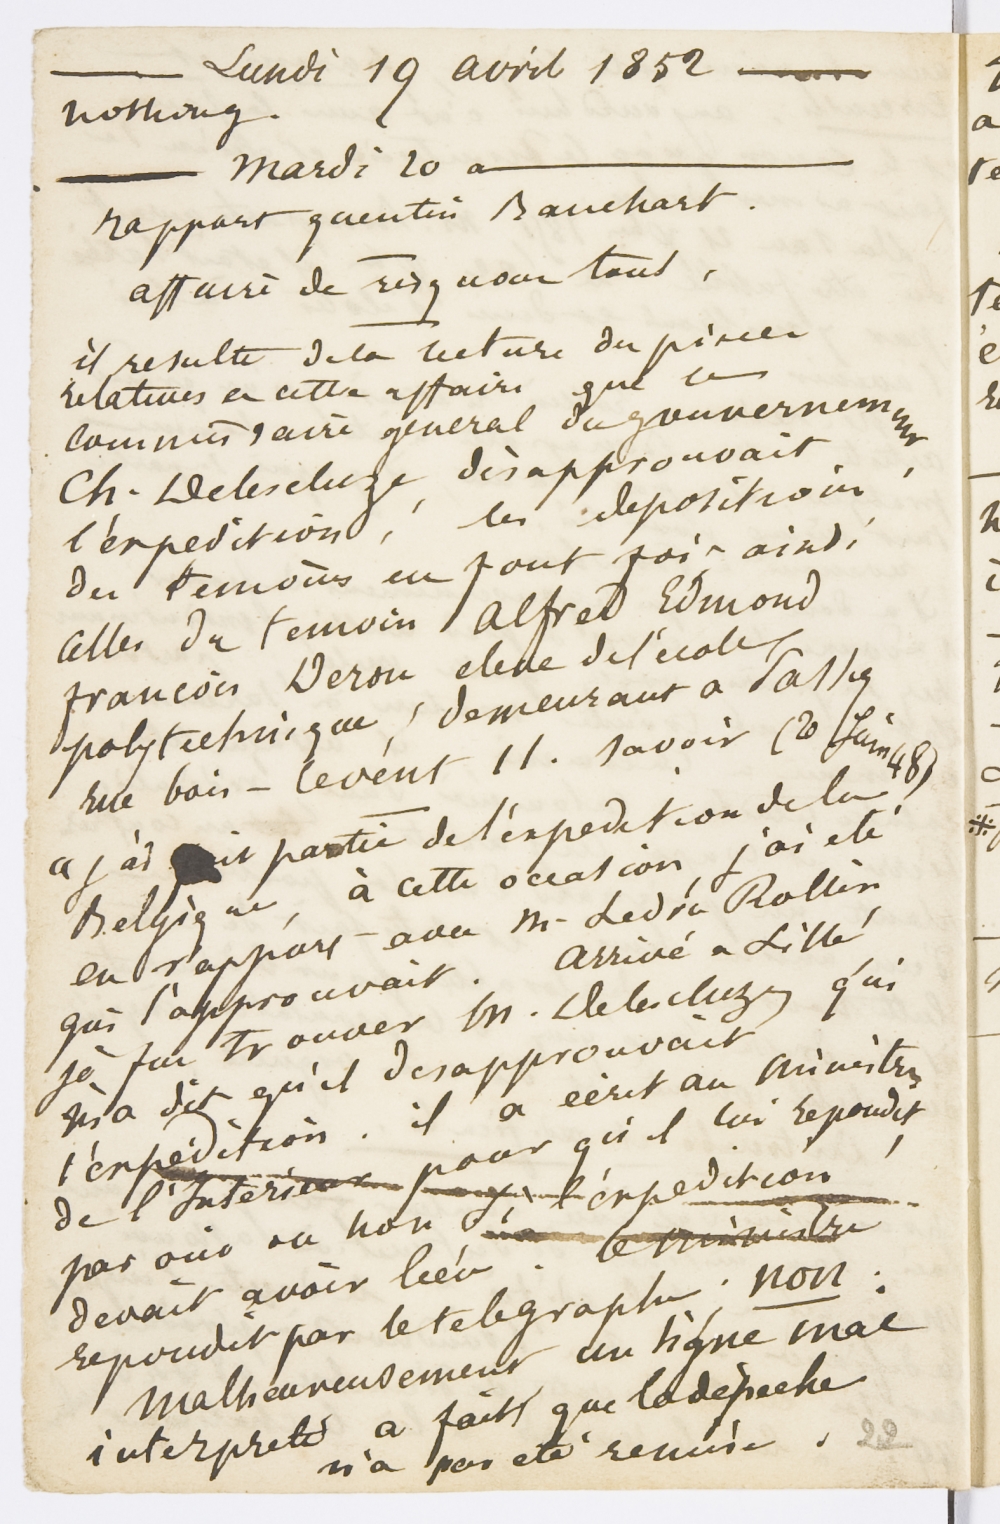 Lundi 19 avril 1852
nothong.
Mardi 20 a
rapport quentin Bauchart.
affaire de risquons tout,
il resulte dela lecture du pieces
relatives a cette affaire que le
commissaire general du gouvernement
Ch. Delescluze, désapprouvait
l'expedition, les depositions
des temoins en font foi, ainsi
celles du temoin Alfred Edmond
françois Deron eleve de l'école
polytechnique, demeurant a Passy
rue bois-levént 11. savoir (20 Juin 48)
"j'ai fait partie de l'expedition de la
Belgique, à cette occasion, j'ai eté
en rapport avec M. Ledru Rollin
qui l'approuvait. Arrivé a Lille
je fus trouver M. Delescluze qui
m'a dit qu'il desapprouvait
l'expédition. il a écrit au ministre
de l'Intérieur pour qu'il lui repondit
par oui ou non si l'expedition
devait avoir liéu. le ministre
repondit par le telegraphe. non.
Malheureusement un signe mal
interpreté a fait que la dépeche
n'a pas eté remise.
22